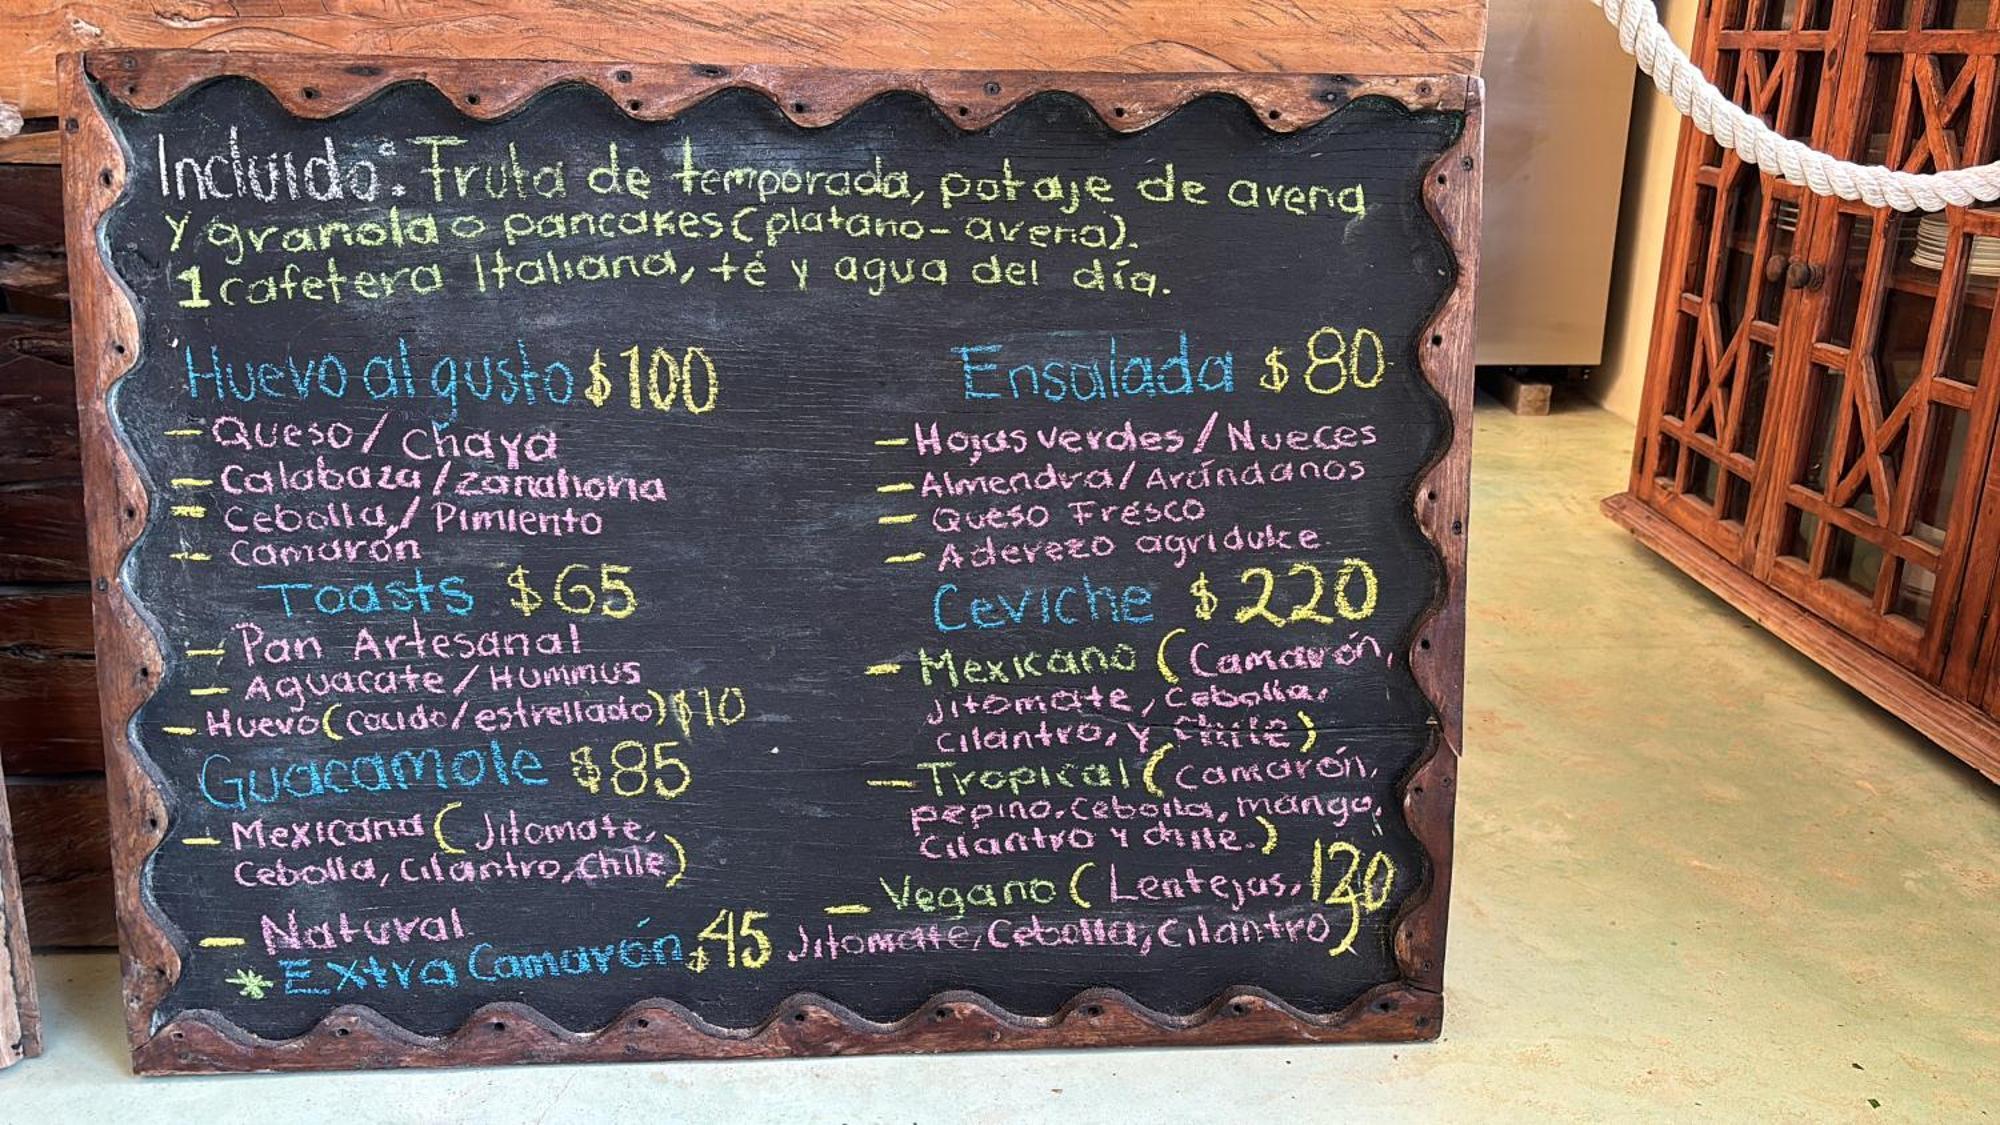 Incluido: Fruta de temporada, potaje de avena
y granola o pancakes (platano-avena).
1 cafetera Italiana, té y agua del día.
Huevo al gusto $100
- Queso / Chaya
- Calabaza / Zanahoria
- Cebolla / Pimiento
- Camarón
Toasts $65
- Pan Artesanal
- Aguacate / Hummus
- Huevo (cocido/estrellado) $10
Guacamole $85
- Mexicana (Jitomate,
Cebolla, Cilantro, Chile)
- Natural
* Extra Camarón $45
Ensalada $80
- Hojas verdes / Nueces
- Almendra / Arándanos
- Queso Fresco
- Aderezo agridulce.
Ceviche $220
- Mexicano (Camarón,
Jitomate, Cebolla,
Cilantro, y Chile)
- Tropical (Camarón,
pepino, Cebolla, mango,
Cilantro y chile.)
- Vegano (Lentejas, 120
Jitomate, Cebolla, Cilantro)